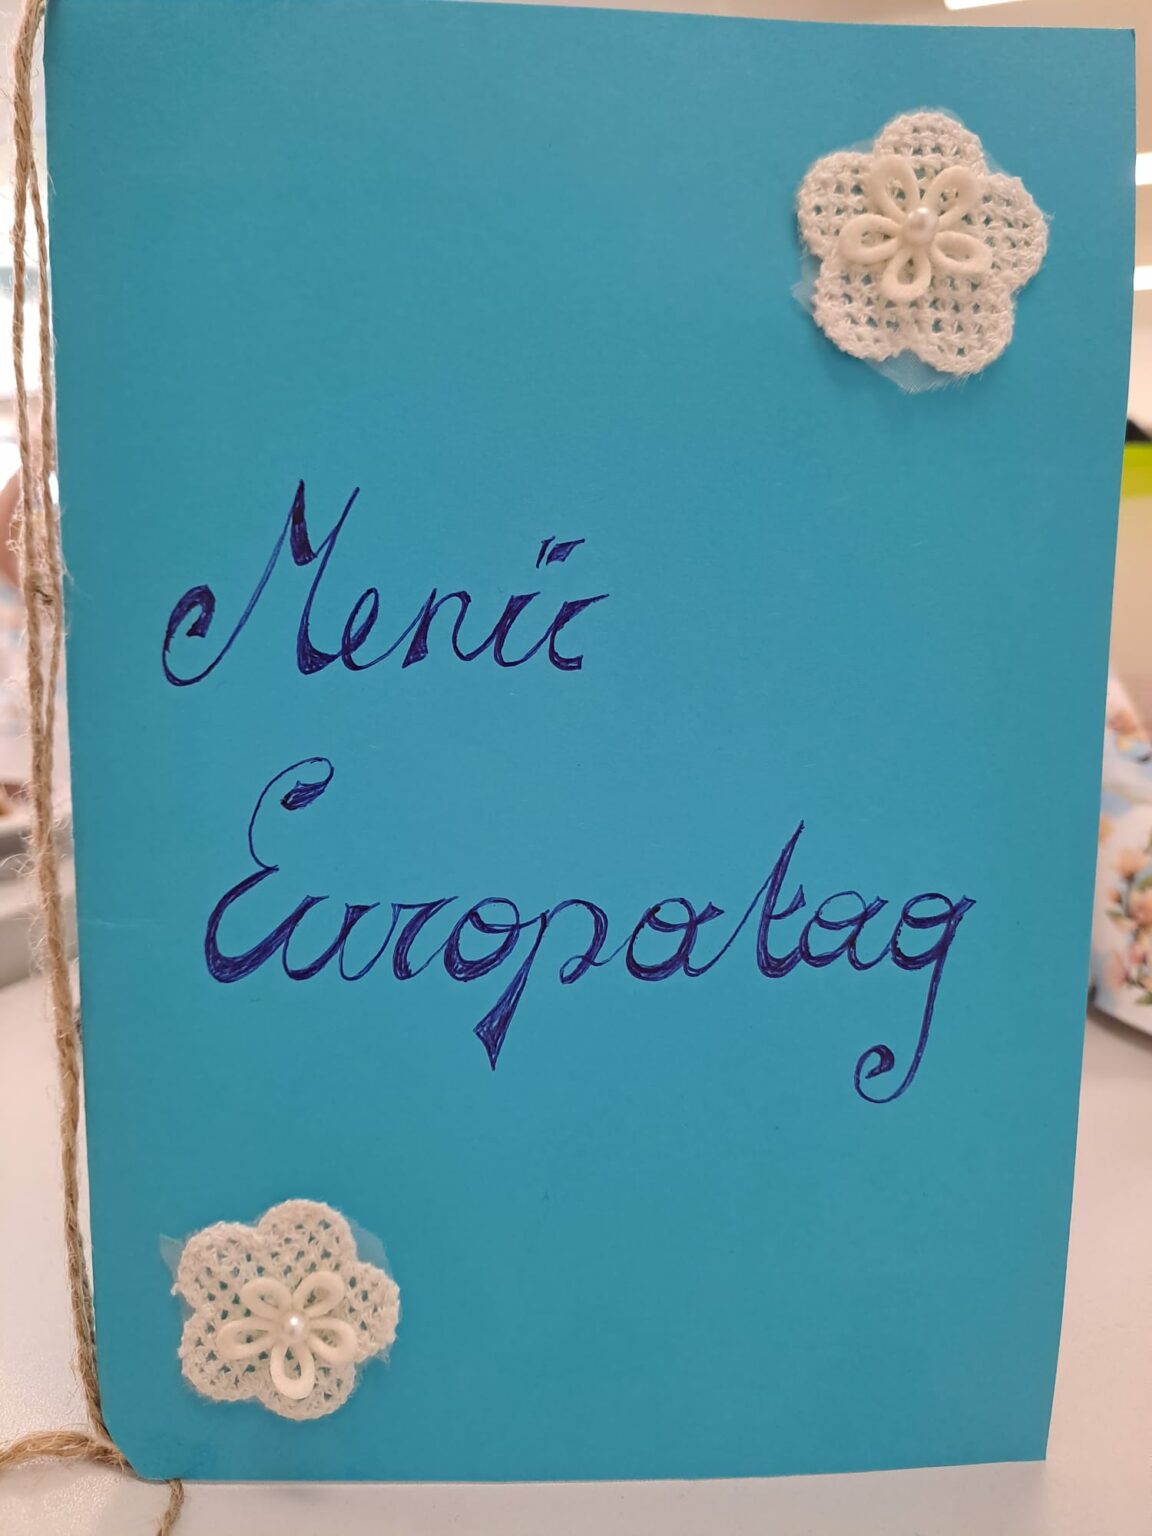 Menü
Europatag